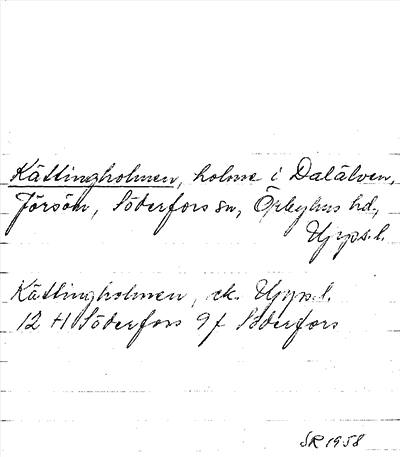 Kättingholmen, holme i Dalälven,
Jörsön, Söderfors sn, Örbyhus hd,
Upps.l.
Kättingholmen, ek. Upps.l.
12 H Söderfors 9 f Söderfors
SR 1958